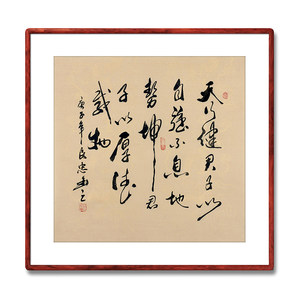 天行健君子以
自強不息地
勢坤君
子以厚德
載物
庚子年